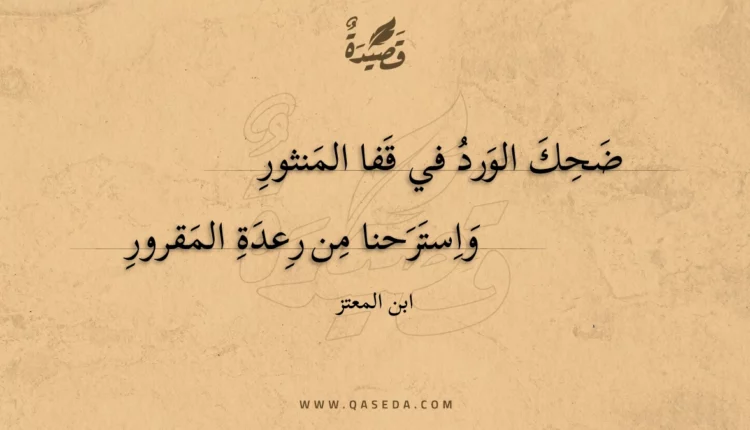 قَصِيدَةٌ
ضَحِكَ الوَردُ في قَفا المَنثورِ
وَاِستَرَحنا مِن رِعدَةِ المَقرورِ
ابن المعتز
WWW.QASEDA.COM